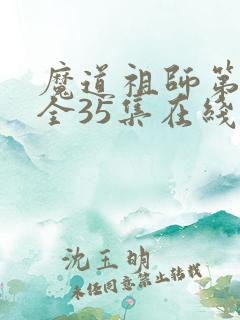 魔道祖师第
全35集在线
沈玉明
未经同意禁止转载